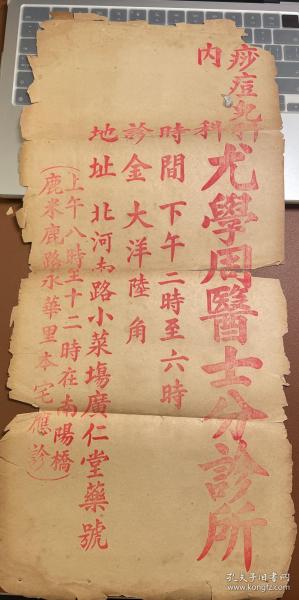 痧痘兒科
內科
尤學周醫士分診所
時間 下午二時至六時
診金 大洋陸角
地址 北河南路小菜場廣仁堂藥號
(上午八時至十二時在南陽橋
鹿米鹿路永華里本宅應診)
孔夫子旧书网